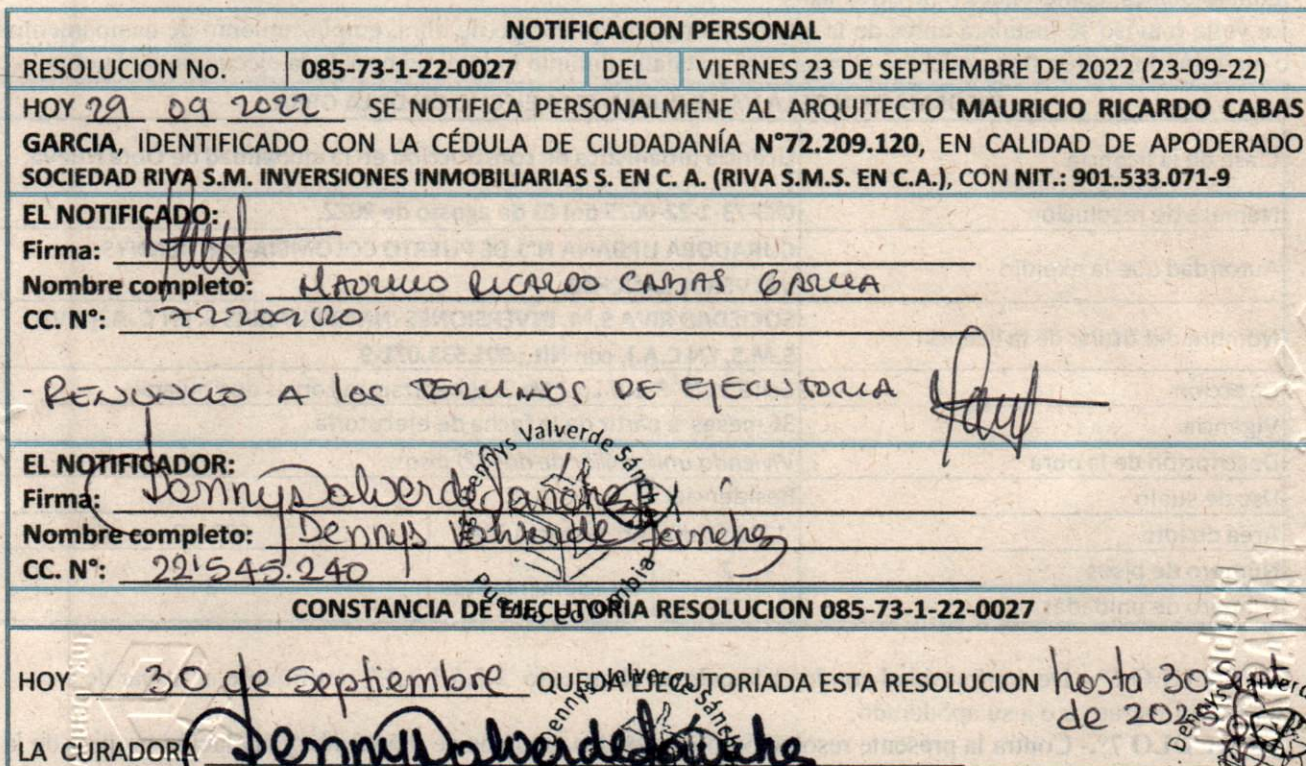 NOTIFICACION PERSONAL
RESOLUCION No. 085-73-1-22-0027 DEL VIERNES 23 DE SEPTIEMBRE DE 2022 (23-09-22)
HOY 29 09 2022 SE NOTIFICA PERSONALMENE AL ARQUITECTO MAURICIO RICARDO CABAS
GARCIA, IDENTIFICADO CON LA CÉDULA DE CIUDADANÍA N°72.209.120, EN CALIDAD DE APODERADO
SOCIEDAD RIVA S.M. INVERSIONES INMOBILIARIAS S. EN C. A. (RIVA S.M.S. EN C.A.), CON NIT.: 901.533.071-9
EL NOTIFICADO:
Firma:
Nombre completo: MAURICIO RICARDO CABAS GARCIA
CC. N°: 72209120
- RENUNCIO A LOS TERMINOS DE EJECUTORIA
EL NOTIFICADOR:
Firma: Dennys Valverde Sanchez
Nombre completo: Dennys Valverde Sanchez
CC. N°: 22'545.240
Dennys Valverde Sánchez
Puerto Colombia
CONSTANCIA DE EJECUTORÍA RESOLUCION 085-73-1-22-0027
HOY 30 de Septiembre QUEDA EJECUTORIADA ESTA RESOLUCION hasta 30 Sept
de 2025
LA CURADORA Dennys Valverde Sanchez